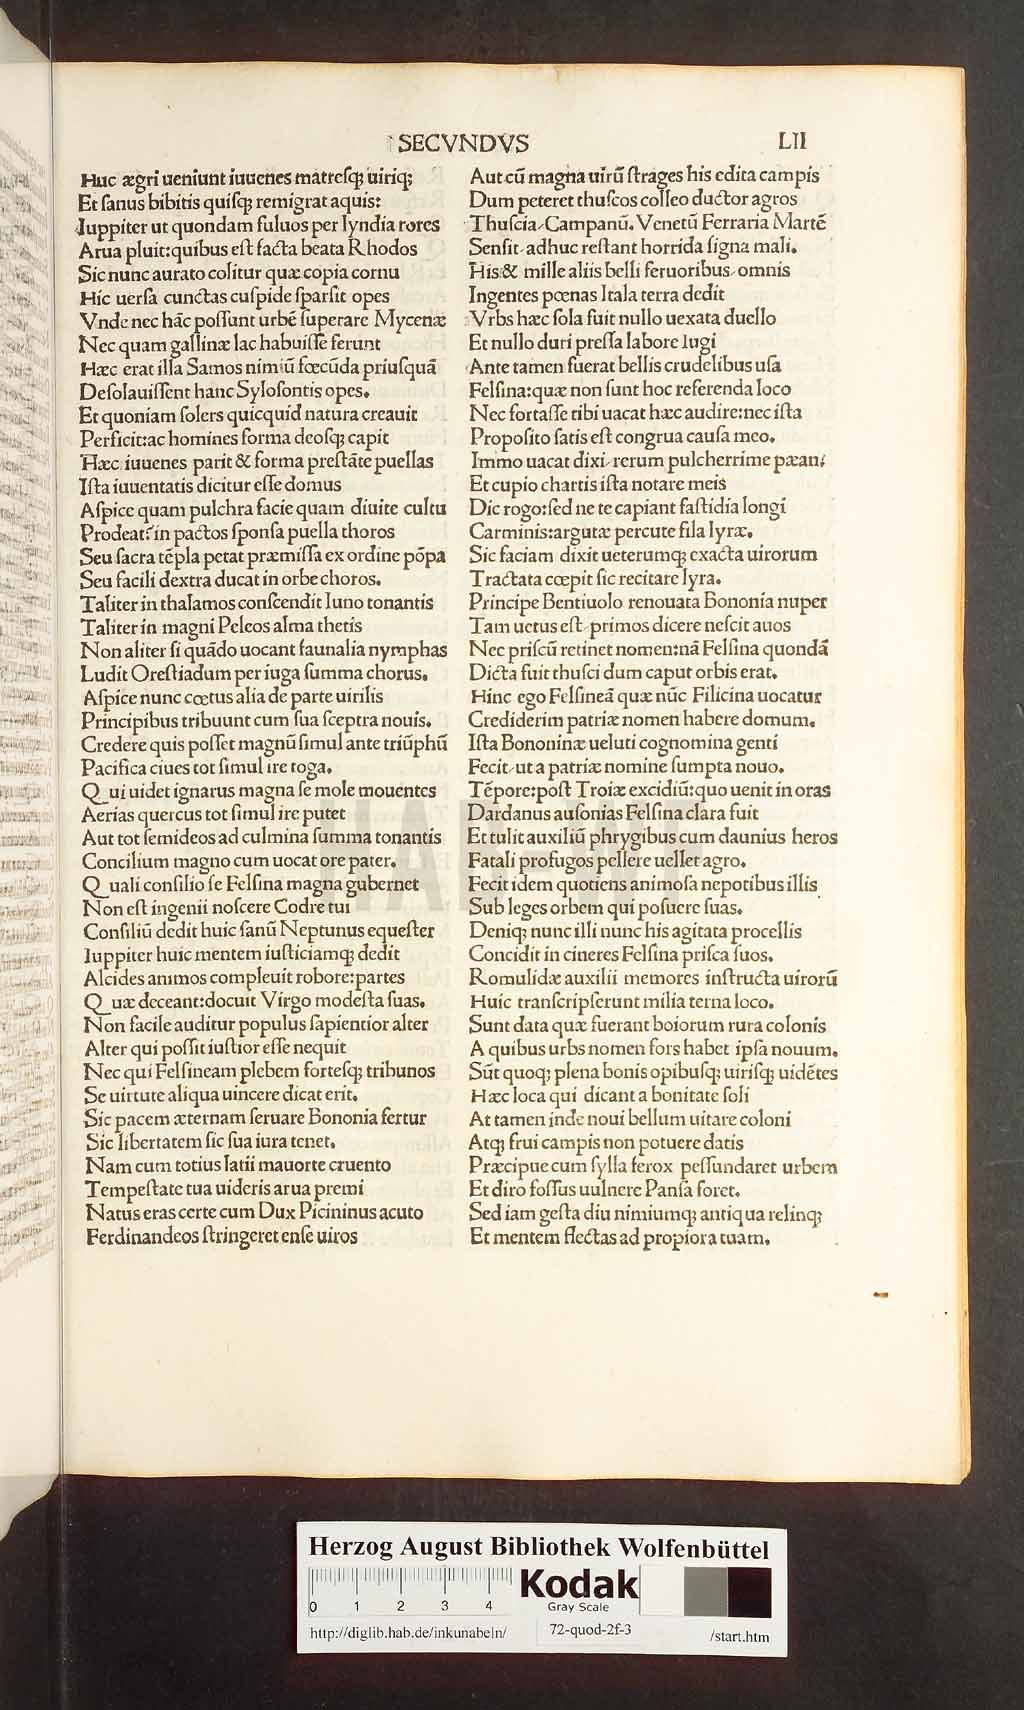 SECVNDVS
LII
Huc ægri ueniunt iuuenes matreſqꝫ uiriqꝫ
Et ſanus bibitis quiſqꝫ remigrat aquis:
Iuppiter ut quondam fuluos per lyndia rores
Arua pluit:quibus eſt facta beata Rhodos
Sic nunc aurato colitur quæ copia cornu
Hic uerſa cunctas cuſpide ſparſit opes
Vnde nec hãc poſſunt urbẽ ſuperare Mycenæ
Nec quam gallinæ lac habuiſſe ferunt
Hæc erat illa Samos nimiũ fœcũda priuſquã
Deſolauiſſent hanc Syloſontis opes.
Et quoniam ſolers quicquid natura creauit
Perficit:ac homines forma deoſqꝫ capit
Hæc iuuenes parit & forma preſtãte puellas
Iſta iuuentatis dicitur eſſe domus
Aſpice quam pulchra facie quam diuite cultu
Prodeat:in pactos ſponſa puella thoros
Seu ſacra tẽpla petat præmiſſa ex ordine põpa
Seu facili dextra ducat in orbe choros.
Taliter in thalamos conſcendit Iuno tonantis
Taliter in magni Peleos alma thetis
Non aliter ſi quãdo uocant faunalia nymphas
Ludit Oreſtiadum per iuga ſumma chorus.
Aſpice nunc cœtus alia de parte uirilis
Principibus tribuunt cum ſua ſceptra nouis.
Credere quis poſſet magnũ ſimul ante triũphũ
Pacifica ciues tot ſimul ire toga.
Q ui uidet ignarus magna ſe mole mouentes
Aerias quercus tot ſimul ire putet
Aut tot ſemideos ad culmina ſumma tonantis
Concilium magno cum uocat ore pater.
Q uali conſilio ſe Felſina magna gubernet
Non eſt ingenii noſcere Codre tui
Conſiliũ dedit huic ſanũ Neptunus equeſter
Iuppiter huic mentem iuſticiamqꝫ dedit
Alcides animos compleuit robore:partes
Q uæ deceant:docuit Virgo modeſta ſuas.
Non facile auditur populus ſapientior alter
Alter qui poſſit iuſtior eſſe nequit
Nec qui Felſineam plebem forteſqꝫ tribunos
Se uirtute aliqua uincere dicat erit.
Sic pacem æternam ſeruare Bononia fertur
Sic libertatem ſic ſua iura tenet.
Nam cum totius latii mauorte cruento
Tempeſtate tua uideris arua premi
Natus eras certe cum Dux Picininus acuto
Ferdinandeos ſtringeret enſe uiros
Aut cũ magna uirũ ſtrages his edita campis
Dum peteret thuſcos colleo ductor agros
Thuſcia/Campanũ. Venetũ Ferraria Martẽ
Senſit/adhuc reſtant horrida ſigna mali.
His & mille aliis belli feruoribus/omnis
Ingentes pœnas Itala terra dedit
Vrbs hæc ſola fuit nullo uexata duello
Et nullo duri preſſa labore Iugi
Ante tamen fuerat bellis crudelibus uſa
Felſina:quæ non ſunt hoc referenda loco
Nec fortaſſe tibi uacat hæc audire:nec iſta
Propoſito ſatis eſt congrua cauſa meo.
Immo uacat dixi/rerum pulcherrime pæan:
Et cupio chartis iſta notare meis
Dic rogo:ſed ne te capiant faſtidia longi
Carminis:argutæ percute fila lyræ.
Sic faciam dixit ueterumqꝫ exacta uirorum
Tractata cœpit ſic recitare lyra.
Principe Bentiuolo renouata Bononia nuper
Tam uetus eſt/primos dicere neſcit auos
Nec priſcũ retinet nomen:nã Felſina quondã
Dicta fuit thuſci dum caput orbis erat.
Hinc ego Felſineã quæ nũc Filicina uocatur
Crediderim patriæ nomen habere domum.
Iſta Bononinæ ueluti cognomina genti
Fecit/ut a patriæ nomine ſumpta nouo.
Tẽpore:poſt Troiæ excidiũ:quo uenit in oras
Dardanus auſonias Felſina clara fuit
Et tulit auxiliũ phrygibus cum daunius heros
Fatali profugos pellere uellet agro.
Fecit idem quotiens animoſa nepotibus illis
Sub leges orbem qui poſuere ſuas.
Deniqꝫ nunc illi nunc his agitata procellis
Concidit in cineres Felſina priſca ſuos.
Romulidæ auxilii memores inſtructa uirorũ
Huic tranſcripſerunt milia terna loco.
Sunt data quæ fuerant boiorum rura colonis
A quibus urbs nomen fors habet ipſa nouum.
Sũt quoqꝫ plena bonis opibuſqꝫ uiriſqꝫ uidẽtes
Hæc loca qui dicant a bonitate ſoli
At tamen inde noui bellum uitare coloni
Atqꝫ frui campis non potuere datis
Præcipue cum ſylla ferox peſſundaret urbem
Et diro foſſus uulnere Panſa foret.
Sed iam geſta diu nimiumqꝫ antiqua relinqꝫ
Et mentem flectas ad propiora tuam.
HAB-WF
Herzog August Bibliothek Wolfenbüttel
0 1 2 3 4
Kodak
Gray Scale
http://diglib.hab.de/inkunabeln/
72-quod-2f-3
/start.htm